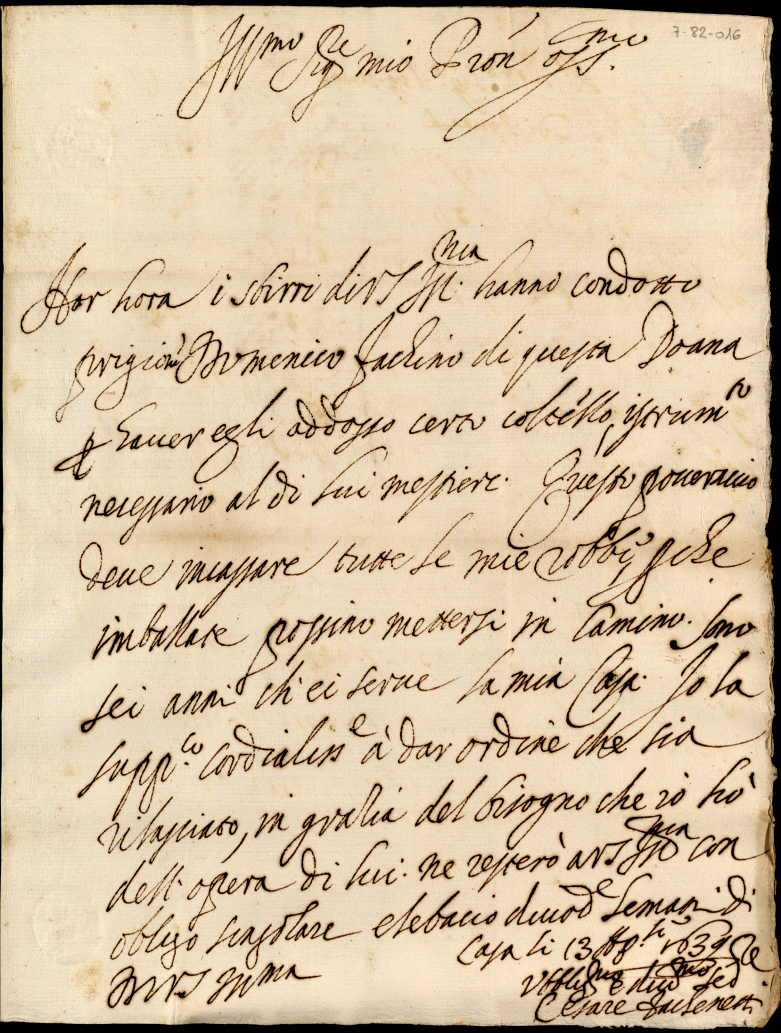 7-82-016
Ill.mo Sig.re mio Pron̄ oss.mo
Hor hora i sbirri di VS Ill.ma hanno condotto
prigion' Domenico Fachino di questa Doana
p hauer egli addosso certo coltello, istrum.to
necessario al di lui mestiere. Questo poueraccio
deue incassare tutte le mie robbe, pche
imballate possino mettersi in Camino. Sono
sei anni ch'ei serue la mia Casa. Io la
supp.co cordialiss.e à dar ordine che sia
rilasciato, in gratia del bisogno che io hò
dell'opera di lui. ne resterò a VS Ill.ma con
obligo singolare e le bacio diuod.e le mani. di
Casa li 13 1639
Di VS Ill.ma
Obblig.mo e diuo.mo Se.re
Cesare Fachenetti